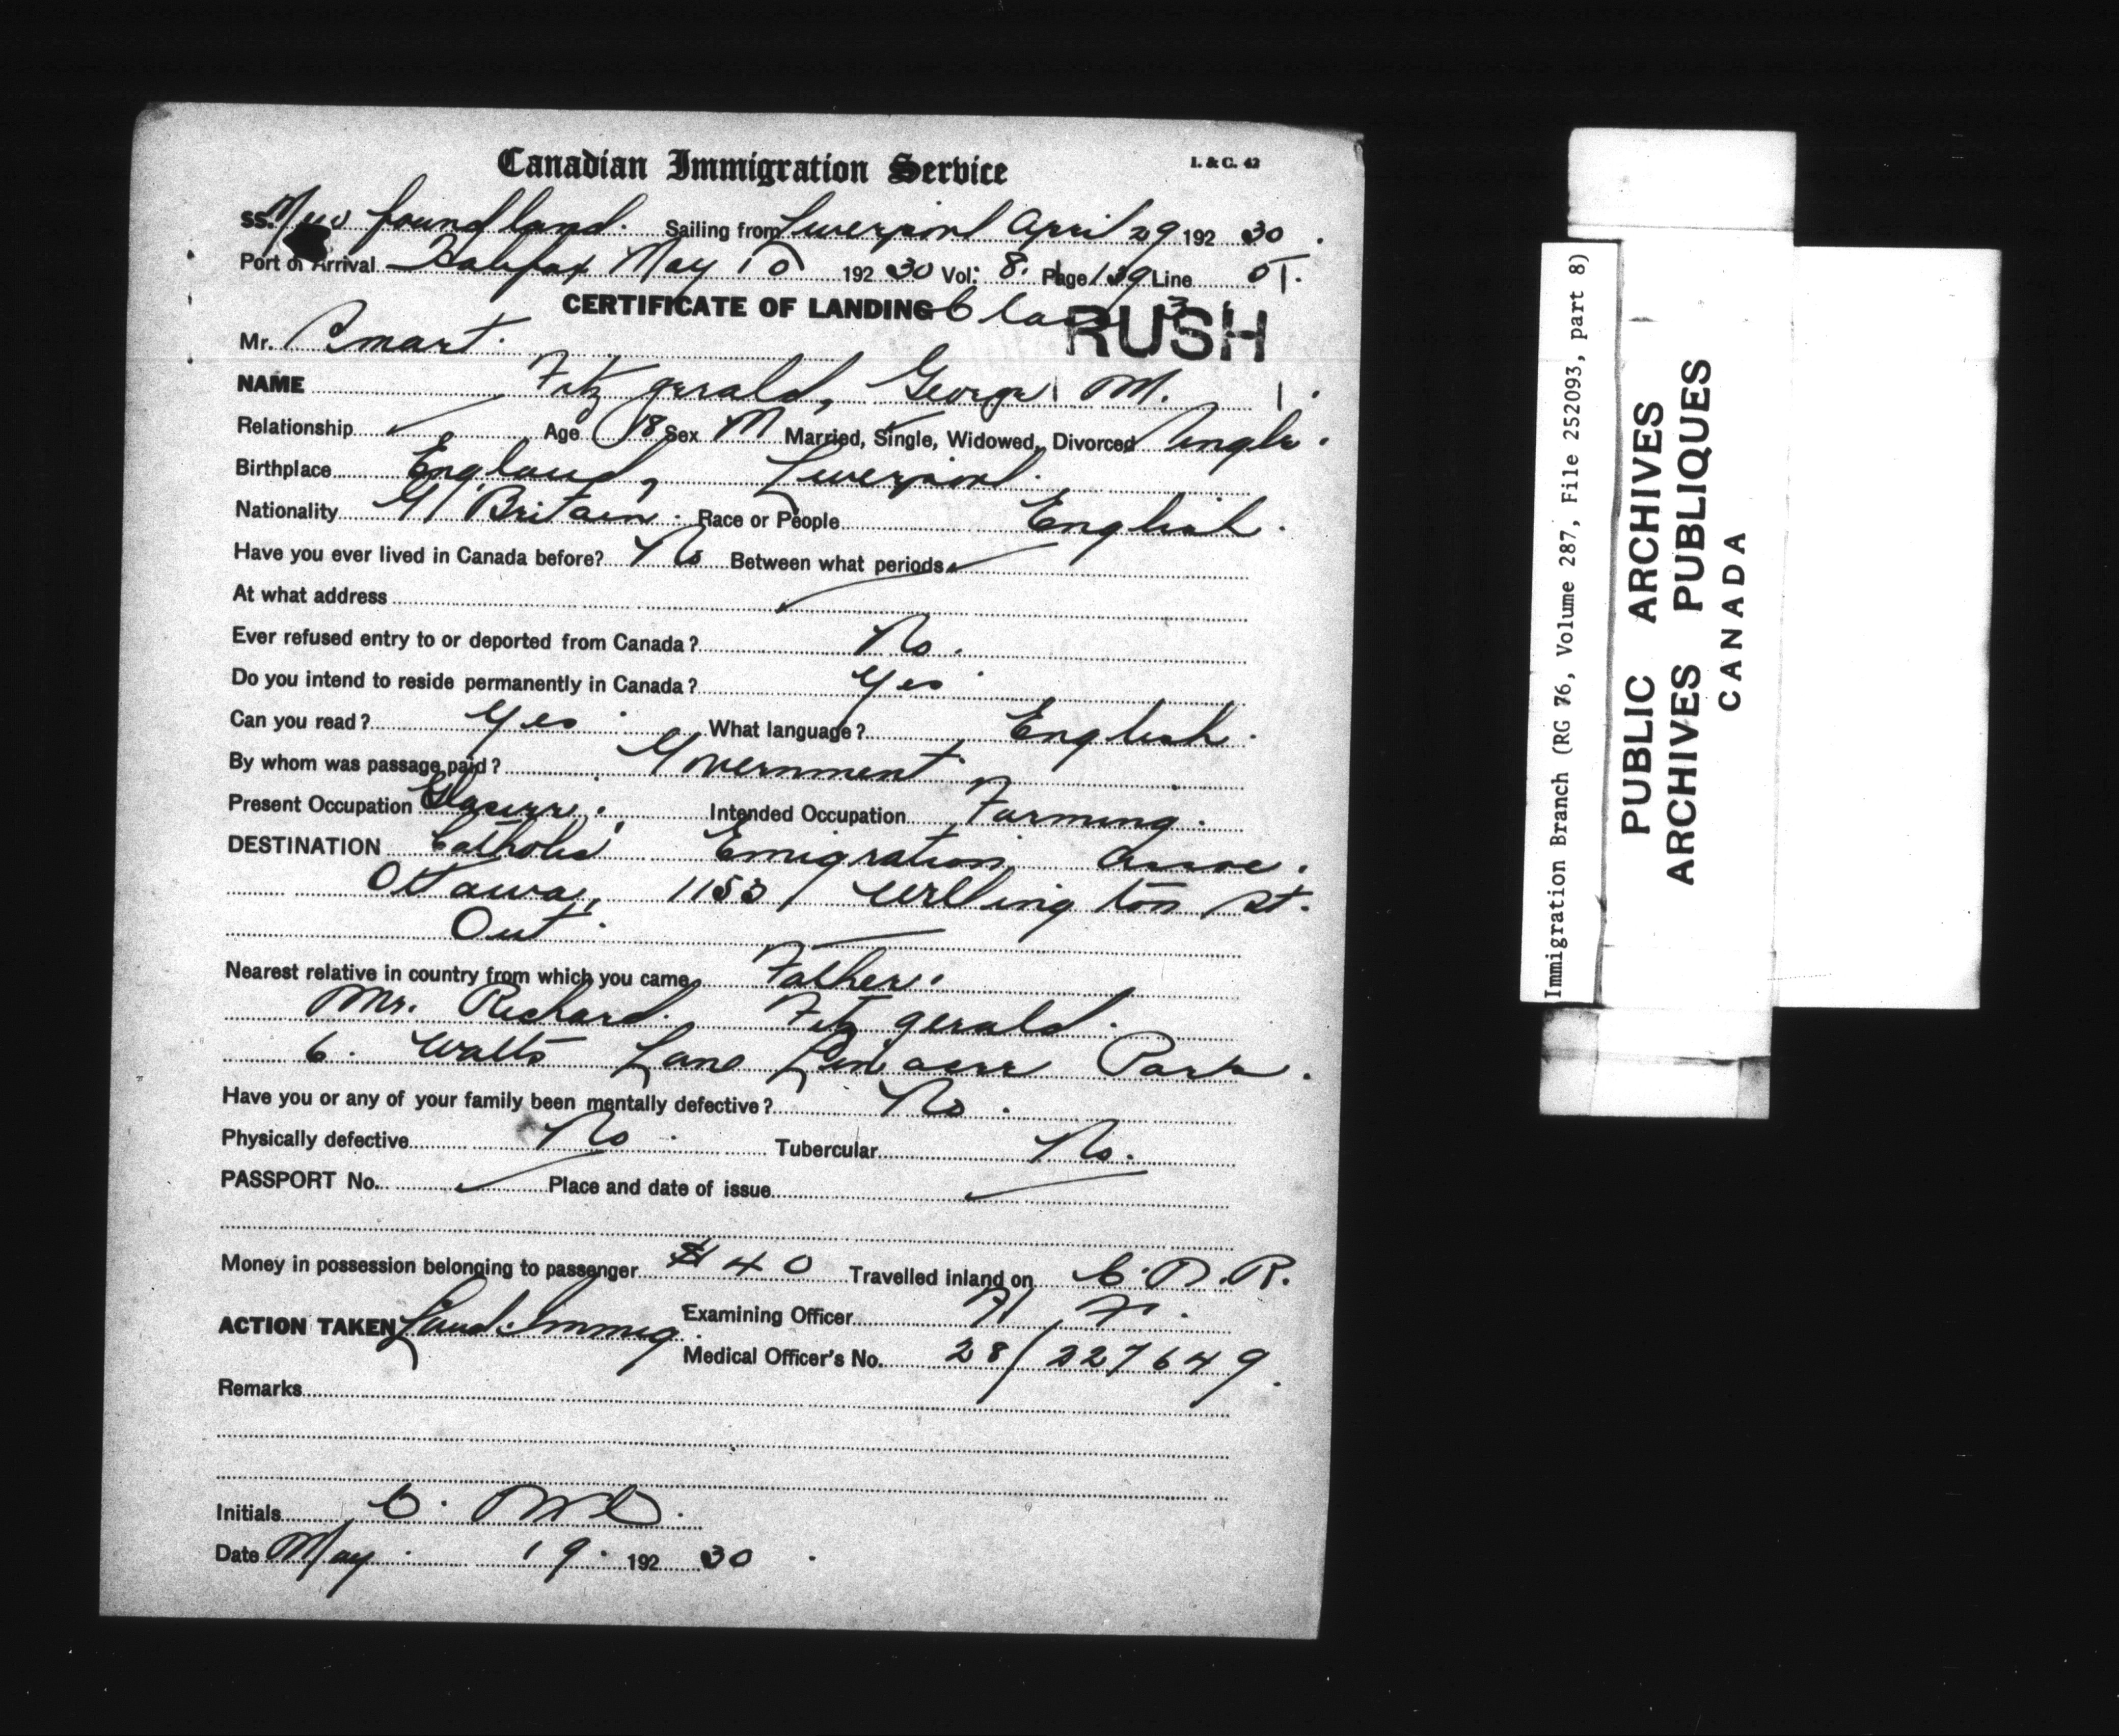 Canadian Immigration Service
I. & C. 42
SS. Newfoundland. Sailing from Liverpool April 29 192 30.
Port of Arrival Halifax May 10 192 30 Vol: 8. Page 139 Line
CERTIFICATE OF LANDING Class 3
RUSH
Mr. Smart.
NAME Fitzgerald, George M.
Relationship Age 18 Sex M Married, Single, Widowed, Divorced Single.
Birthplace England, Liverpool.
Nationality Gt Britain. Race or People English.
Have you ever lived in Canada before? No Between what periods
At what address
Ever refused entry to or deported from Canada? No.
Do you intend to reside permanently in Canada? Yes
Can you read? Yes. What language? English.
By whom was passage paid? Government
Present Occupation Intended Occupation Farming.
DESTINATION Catholic Emigration Assoc.
Ottawa, 1153 Wellington St.
Ont.
Nearest relative in country from which you came Father.
Mr. Richard Fitzgerald.
6. Walts Lane Linacre Park.
Have you or any of your family been mentally defective? No.
Physically defective No. Tubercular No.
PASSPORT No. Place and date of issue
Money in possession belonging to passenger $40 Travelled inland on C.N.R.
ACTION TAKEN Land. Immig. Examining Officer
Medical Officer's No. 28/227649.
Remarks
Initials
Date May 19. 192 30
Immigration Branch (RG 76, Volume 287, File 252093, part 8)
PUBLIC ARCHIVES
ARCHIVES PUBLIQUES
CANADA